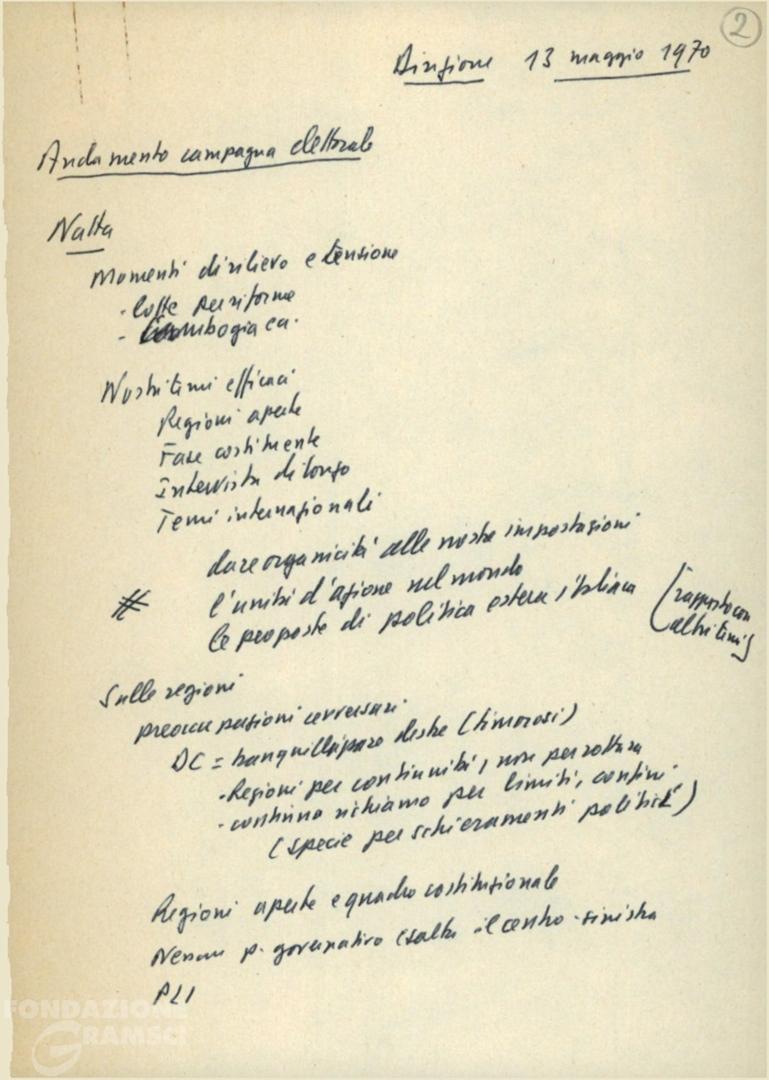 2
Direzione 13 maggio 1970
Andamento campagna elettorale
Natta
Momenti di rilievo e tensione
- Lotte per riforme
- Cambogia ca.
Nostri temi efficaci
Regioni aperte
Fase costituente
Intervista di Longo
Temi internazionali
dare organicità alle nostre impostazioni
# l'unità d'azione nel mondo
le proposte di politica estera italiana (rapporto con
altri temi)
Sulle regioni
preoccupazioni avversari
DC = tranquillizzare destre (timorosi)
- Regioni per continuità, non per rottura
- continuo richiamo per limiti, confini
(specie per schieramenti politici)
Regioni aperte e quadro costituzionale
Nessun p. governativo esalta il centro-sinistra
PLI
FONDAZIONE
GRAMSCI